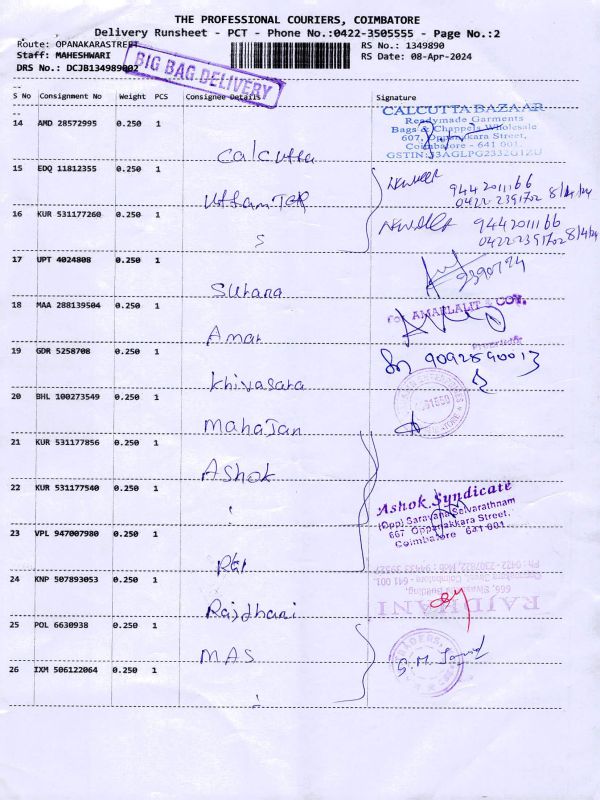 THE PROFESSIONAL COURIERS, COIMBATORE
Delivery Runsheet - PCT - Phone No.:0422-3505555 - Page No.:2
Route: OPANAKARASTREET
RS No.: 1349890
Staff: MAHESHWARI
RS Date: 08-Apr-2024
DRS No.: DCJB134989002
BIG BAG DELIVERY
S No Consignment No Weight PCS Consignee Details Signature
14 AMD 28572995 0.250 1
Calcutta
CALCUTTA BAZAAR
Readymade Garments
Bags & Chappels Wholesale
607, Oppanakara Street,
Coimbatore - 641 001.
GSTIN:33AGLPG2332G1ZU
15 EDQ 11812355 0.250 1
9442011166
0422 2391702 8/4/24
16 KUR 531177260 0.250 1
9442011166
0422-2391702 8/4/24
17 UPT 4024808 0.250 1
Surana
18 MAA 288139504 0.250 1
Amar
For AMARLALIT & COY.
19 GDR 5258708 0.250 1
Khivasara
9092890013
20 BHL 100273549 0.250 1
Mahajan
21 KUR 531177856 0.250 1
Ashok
22 KUR 531177540 0.250 1
Ashok Syndicate
(Opp) Saravana Selvarathnam
667 Oppanakkara Street,
Coimbatore 641 001.
23 VPL 947007980 0.250 1
24 KNP 507893053 0.250 1
Rajdhani
RAJDHANI
25 POL 6630938 0.250 1
MAS
26 IXM 506122064 0.250 1